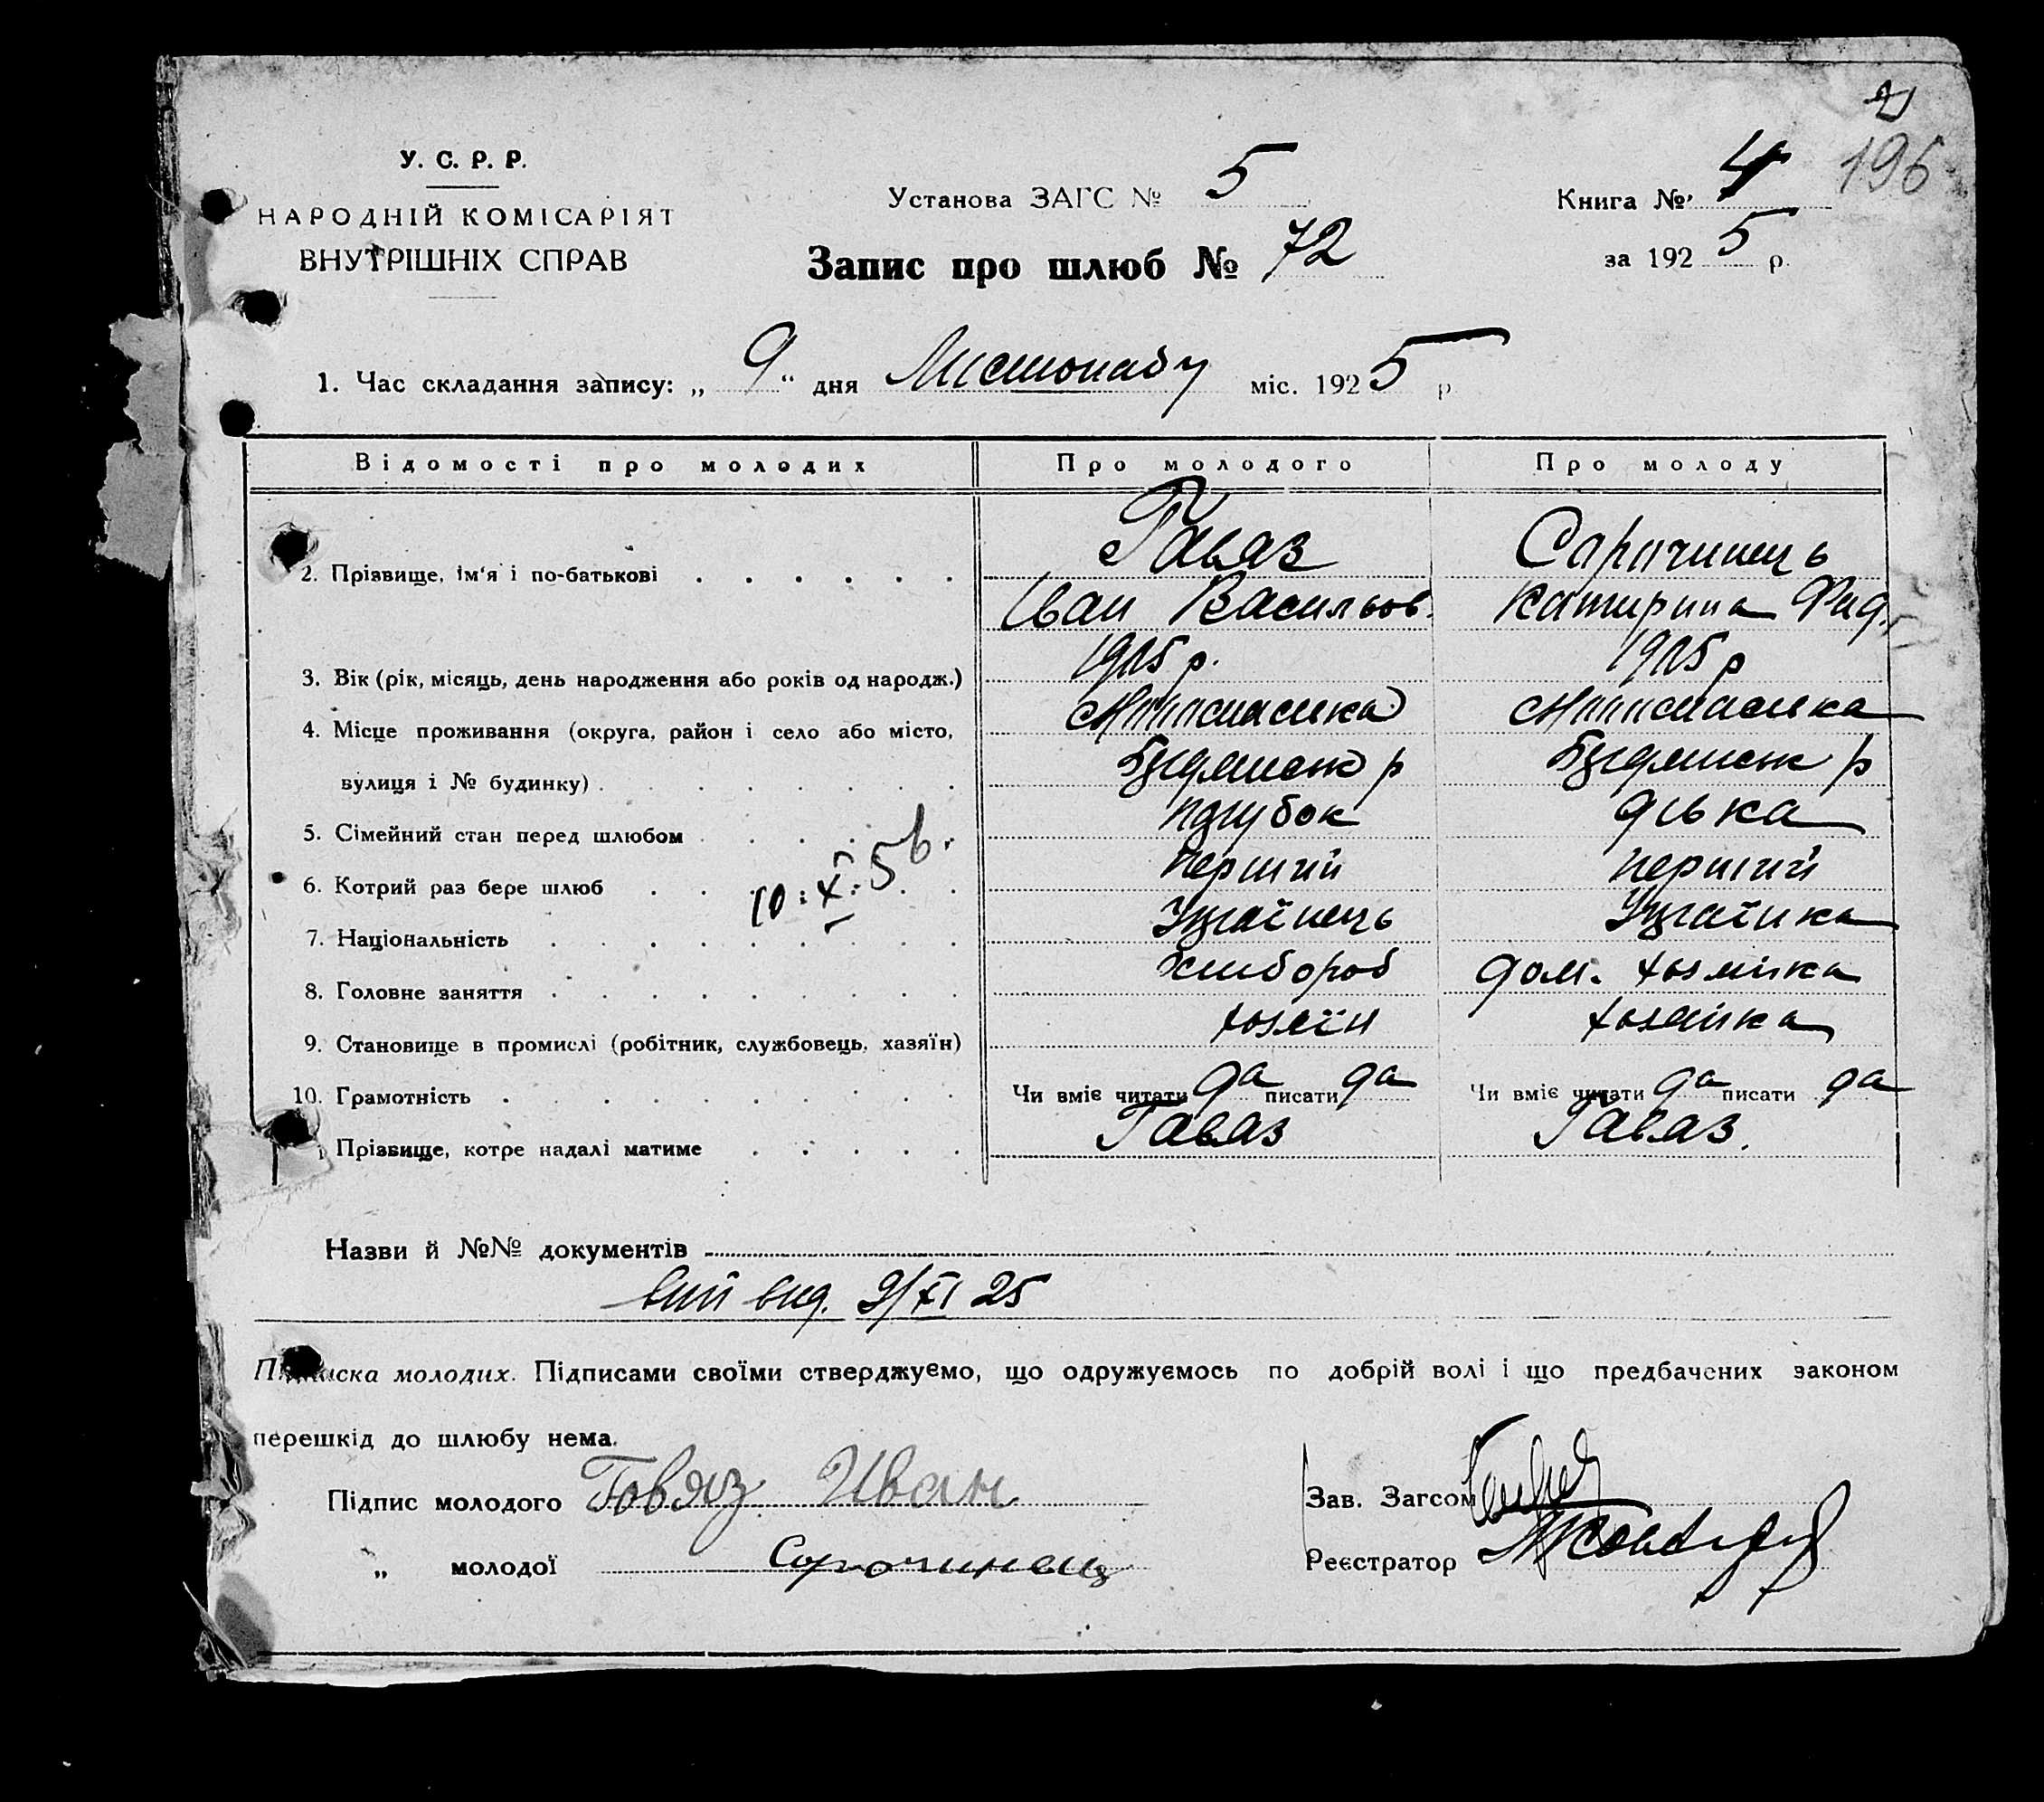 У. С. Р. Р.
НАРОДНІЙ КОМІСАРІЯТ
ВНУТРІШНІХ СПРАВ
Установа ЗАГС № 5
Книга № 4
196
Запис про шлюб № 72
за 1925 р.
1. Час складання запису: „ 9 “ дня Листопаду міс. 1925 р
Відомості про молодих Про молодого Про молоду
2. Прізвище, ім'я і по-батькові Гавяз Сарочинець
Іван Васильов. Катирина Фид.
3. Вік (рік, місяць, день народження або років од народж.) 1905 р. 1905 р
4. Місце проживання (округа, район і село або місто,
вулиця і № будинку)
5. Сімейний стан перед шлюбом парубок дівка
6. Котрий раз бере шлюб перший перший
10. X. 56.
7. Національність Украінець Украінка
8. Головне заняття хлибороб дом.
9. Становище в промислі (робітник, службовець, хазяїн) хозяїн хозяйка
10. Грамотність Чи вміє читати да писати да Чи вміє читати да писати да
Прізвище, котре надалі матиме Гавяз Гавяз.
Назви й №№ документів
вид. 9/XI 25
Підписка молодих. Підписами своїми стверджуємо, що одружуємось по добрій волі і що предбачених законом
перешкід до шлюбу нема.
Підпис молодого Говяз Иван
Зав. Загсом
„ молодої Сорочинец
Реєстратор